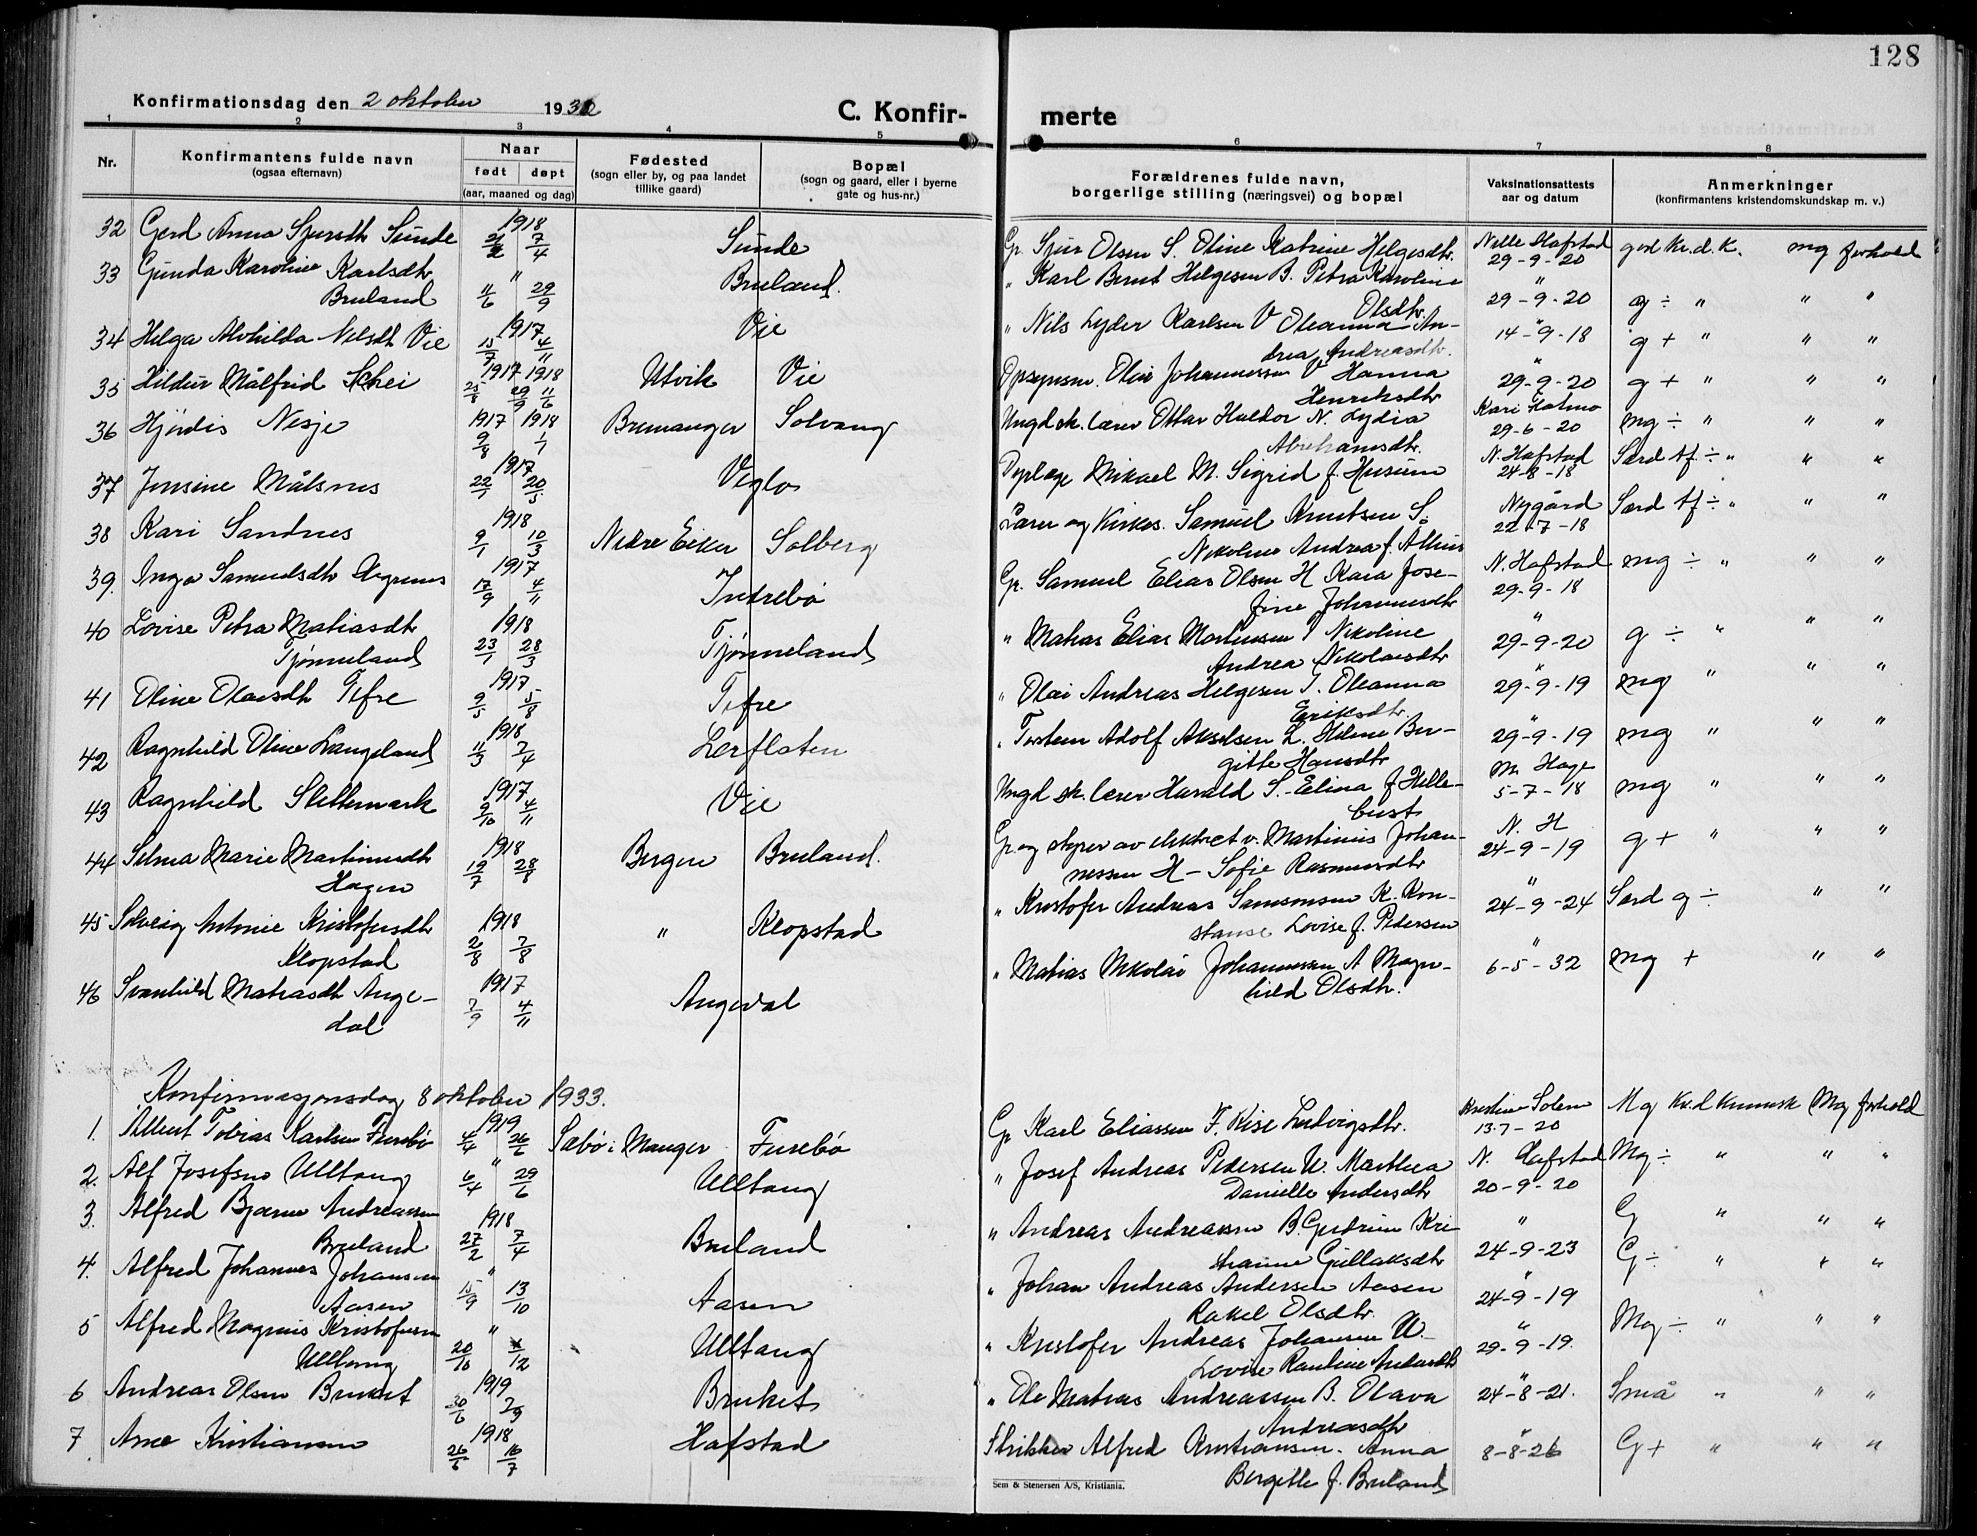 128
Konfirmationsdag den 2 oktober 1932
C. Konfir-
merte
1 2 3 4 5 6 7 8
Nr.
Konfirmantens fulde navn
(ogsaa efternavn)
Naar
født døpt
(aar, maaned og dag)
Fødested
(sogn eller by, og paa landet
tillike gaard)
Bopæl
(sogn og gaard, eller i byerne
gate og hus-nr.)
Forældrenes fulde navn,
borgerlige stilling (næringsvei) og bopæl
Vaksinationsattests
aar og datum
Anmerkninger
(konfirmantens kristendomskundskap m. v.)
32 Gerd Anna Sjursdtr Sunde 1918 7/4 Sunde Gr. Sjur Olsen S. Oline Katrine Helgesdtr. Nelle Hafstad 29-9-20 god Kr.d.K. mg forhold
33 Gunda Karoline Karlsdtr. " Bruland. " Karl Bernt Helgesen B. Petra Karoline "
Bruland 11/6 29/9 Olsdtr. 29-9-20 g ÷ " " "
34 Helga Alvhilda Nilsdtr Vie 1917 15/7 4/11 Vie " Nils Lyder Karlsen V Oleanna An- " 14-9-18 g + " " "
drea Andreasdtr.
35 Hildur Målfrid Skei 1917 1918 Utvik Vie Opsynsm. Olai Johannessen V Hanna " 29-9-20 g + " " "
Henriksdtr
36 Hjördis Nesje 1917 1918 9/8 1/1 Bremanger Solvang Ungdsk. lærer Ottar Haldor N. Lydia Kari Holmo 29-6-20 mg ÷ " " "
Abrahamsdtr.
37 Jensine Målsnes 1917 22/1 20/5 Veglo Dyrlæge Mikael M. Sigrid f. Husum N. Hafstad 24-8-18 Særd tf ÷ " " "
38 Kari Sandnes 1918 9/1 10/3 Nedre Eiker Solberg Lærer og Kirkes. Samuel Knutsen S. Nygård 22-7-18 Særd tf ÷ " " "
Nikoline Andrea f.
39. Inga Samuelsdtr 1917 17/9 4/11 Indrebö Gr. Samuel Elias Olsen H Kaia Jose- N. Hafstad 29-9-18 mg ÷ " " "
fine Johannesdtr
40 Lovise Petra Matiasdtr 1918 " Matias Elias Martinusen T Nikoline "
Tjönneland 23/1 28/3 Tjönneland Andrea Nikolaisdtr 29-9-20 g ÷ " " "
41 Oline Olaisdtr Tefre 1917 9/5 5/8 Tefre " Olai Andreas Helgesen T. Oleanna " 29-9-19 mg " " "
Eriksdtr.
42 Ragnhild Oline Langeland 1918 11/3 7/4 Lerflaten " Torstein Adolf Akselsen L. Helene Ber- " 29-9-19 mg " " "
gitte Hansdtr
43 Ragnhild Slettemark 1917 9/10 4/11 Vie Ungd sk. lærer Harald S. Elina f Helle- M. Hage 5-7-18 mg " " "
bust
44 Selma Marie Martinusdtr 1918 Bergen Bruland. Gr og styrer av elektr.et v. Martinius Johan- N. H
Hagen 19/7 28/8 nessen H- Sofie Rasmusdtr 24-9-19 g + " " "
45 Solveig Antonie Kristofersdtr 1918 " Klopstad " Kristofer Andreas Samsonsen K. Kon- " 24-9-24 Særd g ÷ " "
Klopstad 2/8 7/8 stanse Lovise f. Pedersen
46 Svanhild Matiasdtr Ange- 1917 7/9 4/11 Angedal " Matias Nikolai Johannessen A Magn- " 6-5-32 mg + " "
dal hild Olsdtr.
Konfirmasjonsdag 8 oktober 1933.
1. Albert Tobias Karlsen Furebö 1919 4/4 26/6 Sæbö i Manger Furebö Gr Karl Eliassen F. Kise Ludvigsdtr. Kristine Solem 13-7-20 Mg Kr.d kunnsk Mg forhold
2. Alf Josefsen Ulltang " 6/4 29/6 Ulltang " Josef Andreas Pedersen U. Marthea N. Hafstad Mg ÷ " " "
Danielle Andersdtr 20-9-20
3. Alfred Bjarne Andreassen 1918 " Andreas Andreassen B. Gudrun Kri- " G " " "
Bruland 27/2 7/4 Bruland stianne Gullaksdtr 24-9-23
4. Alfred Johannes Johansen " " Johan Andreas Andersen Aasen " G ÷ " " "
Aasen 15/9 13/10 Aasen Rakel Olsdtr. 24-9-19
5 Alfred Magnus Kristofersen " " Kristofer Andreas Johansen U. " Mg ÷ " " "
Ulltang 20/10 /12 Ulltang Lovise Pauline Andersdtr 29-9-19.
6 Andreas Olsen Bruket 1919 30/6 7/9 Bruket " Ole Matias Andreassen B. Olava " 24-8-21. Små " " "
Andreasdtr
7 Arne Kristiansen 1918 26/6 16/7 Hafstad Strikker Alfred Kristiansen. Anna " 8-8-26 G + " " "
Bergitte f. Bruland
Sem & Stenersen A/S, Kristiania.